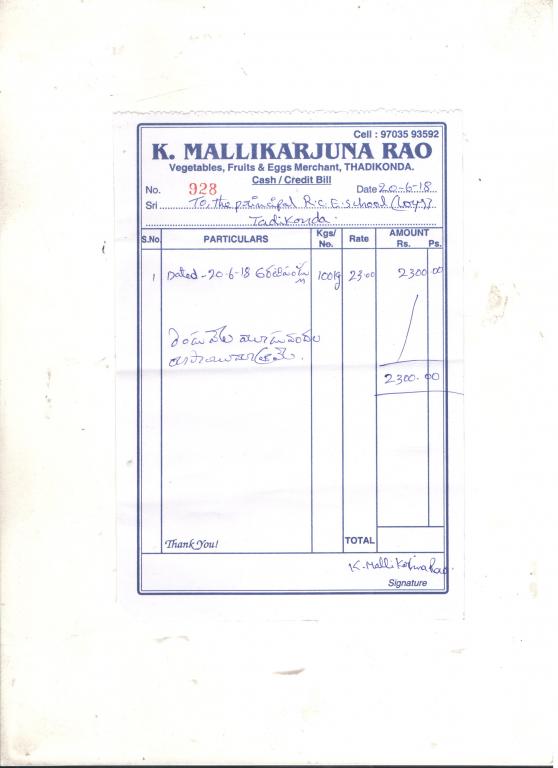 Cell : 97035 93592
K. MALLIKARJUNA RAO
Vegetables, Fruits & Eggs Merchant, THADIKONDA.
Cash / Credit Bill
No. 928 Date 20-6-18
Sri To, the principal R.C.E. school (Boys)
Tadikonda.
S.No. PARTICULARS Kgs/ No. Rate AMOUNT Rs. Ps.
1 Dated - 20-6-18 100kg 23.00 2300 00
రెండు వేల మూడువందల
రూపాయలు
2300. 00
Thank You! TOTAL
K. Mallikarjuna Rao.
Signature